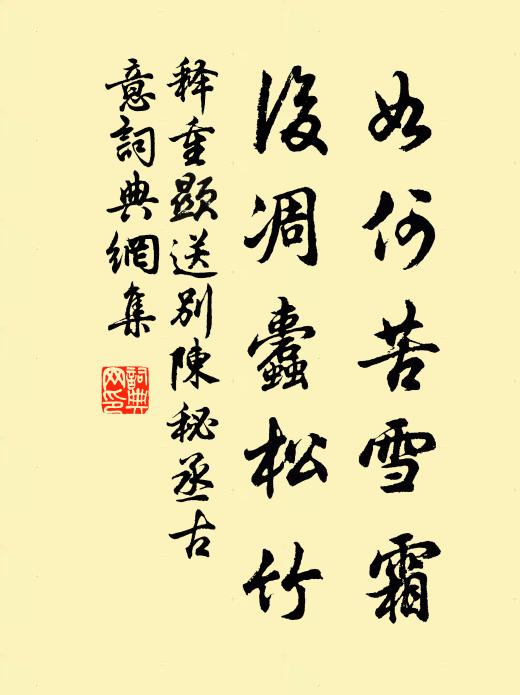 如何苦雪霜
後凋蠹松竹
释重顯送别陳秘丞古
意詞典網集
詞典
网印